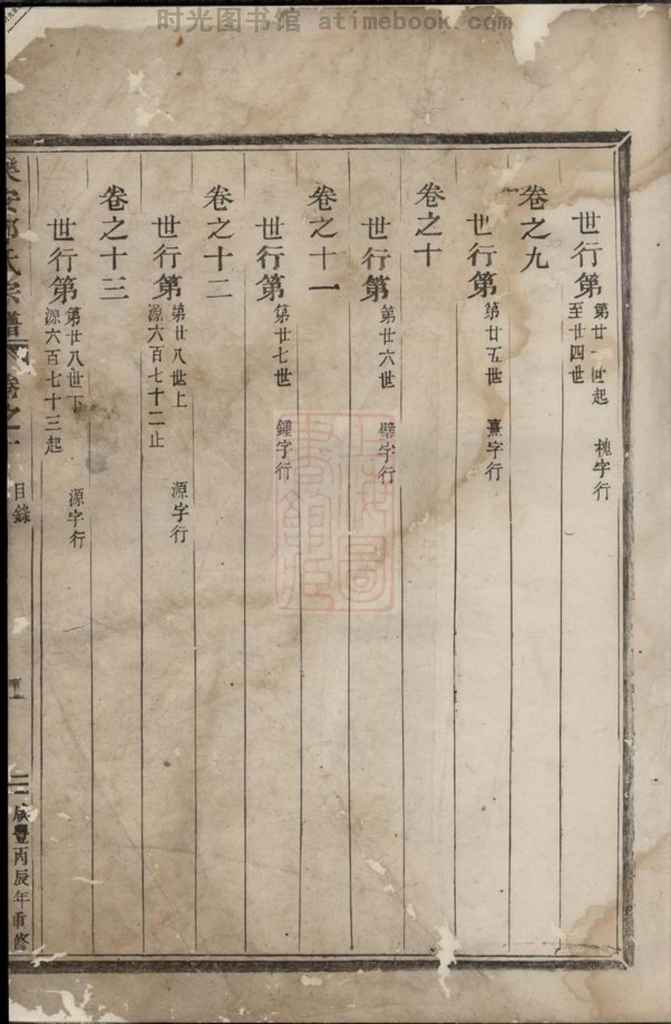 时光图书馆 atimebook.com
世行第 第廿一世起 槐字行
至廿四世
卷之九
世行第 第廿五世 熹字行
卷之十
世行第 第廿六世 璧字行
卷之十一
世行第 第廿七世 鍾字行
卷之十二
世行第 第廿八世上 源字行
源六百七十二止
卷之十三
世行第 第廿八世下 源字行
源六百七十三起
氏宗譜 卷之 目錄
咸豐丙辰年重修